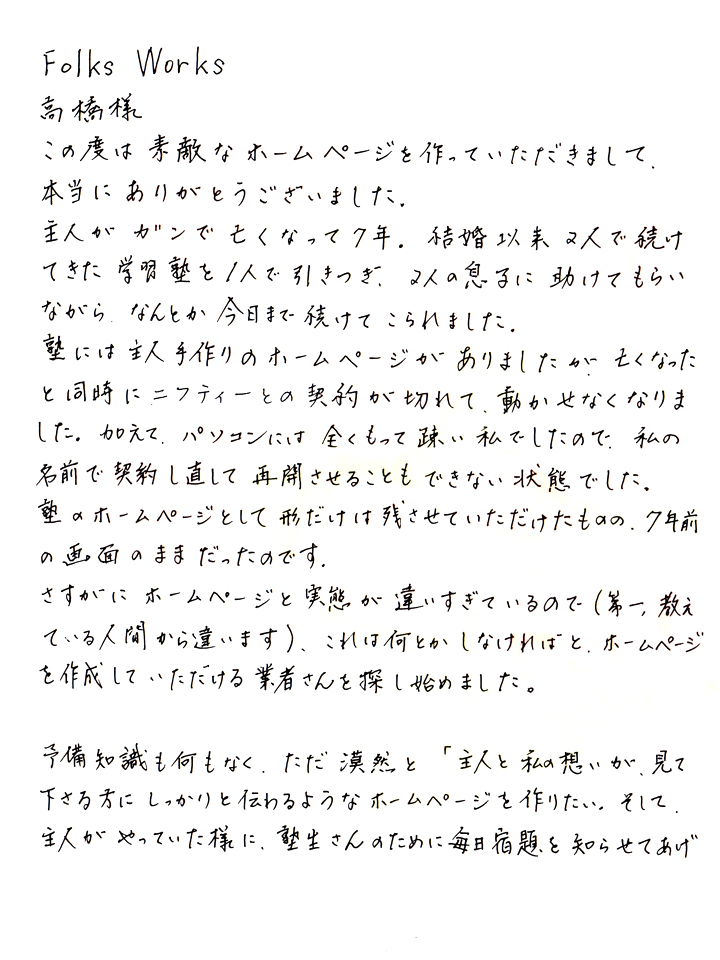 Folks Works
高橋様
この度は 素敵な ホームページを作っていただきまして、
本当に ありがとうございました。
主人が ガンで 亡くなって7年。結婚以来 2人で続け
てきた 学習塾を1人で引きつぎ、2人の息子に 助けてもらい
ながら、なんとか 今日まで 続けて こられました。
塾には 主人手作りのホームページが ありましたが、亡くなった
と同時に ニフティーとの 契約が 切れて、動かせなくなりま
した。加えて、パソコンには 全くもって 疎い 私でしたので、私の
名前で契約し直して 再開させることも できない 状態でした。
塾のホームページとして 形だけは 残させていただけたものの、7年前
の 画面のまま だったのです。
さすがに ホームページと 実態が 違いすぎているので(第一、教え
ている人間から違います)、これは何とか しなければと、ホームページ
を作成して いただける 業者さんを 探し始めました。
予備知識も何もなく、ただ 漠然と 「主人と 私の想いが、見て
下さる方に しっかりと伝わるような ホームページを作りたい。そして、
主人が やっていた様に、塾生さんのために毎日宿題を知らせてあげ